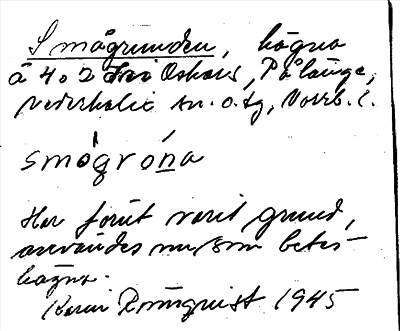 Smågrunden, hägna
å 4 o 2 Oskars, Pålänge,
Nederkalix sn. o. tg, Norrb. l.
smógróna
Har förut varit grund,
användes nu som betes-
hägn.
Karin Rönnqvist 1945